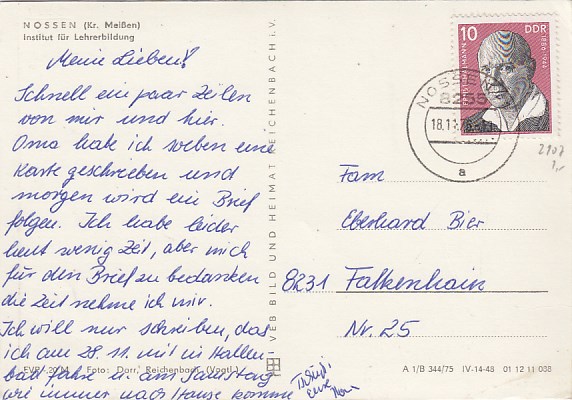 NOSSEN (Kr. Meißen)
Institut für Lehrerbildung
Meine Lieben!
Schnell ein paar Zeilen
von mir und hier.
Oma habe ich soeben eine
Karte geschrieben und
morgen wird ein Brief
folgen. Ich habe leider
heut wenig Zeit, aber mich
für den Brief zu bedanken
die Zeit nehme ich mir.
Ich will nur schreiben, das
ich am 28. 11. mit in Hallen-
bad fahre u. am Samstag
wie immer nach Hause komme
Tschüß,
eure
EVP -,20 M Foto: Darr, Reichenbach (Vogtl.)
VEB BILD UND HEIMAT REICHENBACH i. V.
10 DDR
ERNST THÄLMANN 1886-1944
NOSSEN
8255
18.11.
a
2107
1,-
Fam
Eberhard Bier
8231 Falkenhain
Nr. 25
A 1/B 344/75 IV-14-48 01 12 11 088